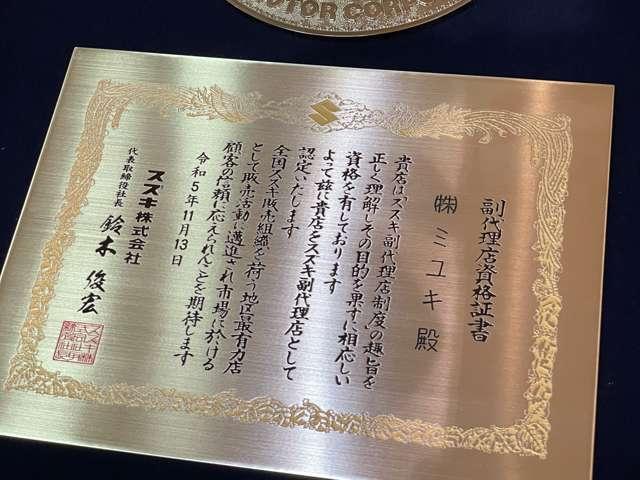 MOTOR CORP
副代理店資格証書
㈱ミユキ殿
貴店は「スズキ副代理店制度」の趣旨を
正しく理解しその目的を果すに相応しい
資格を有しております
よって茲に貴店をスズキ副代理店として
認定いたします
全国スズキ販売組織を荷う地区最有力店
として販売活動に邁進され市場に於ける
顧客の信頼に応えられんことを期待します
令和5年11月13日
スズキ株式会社
代表取締役社長 鈴木俊宏